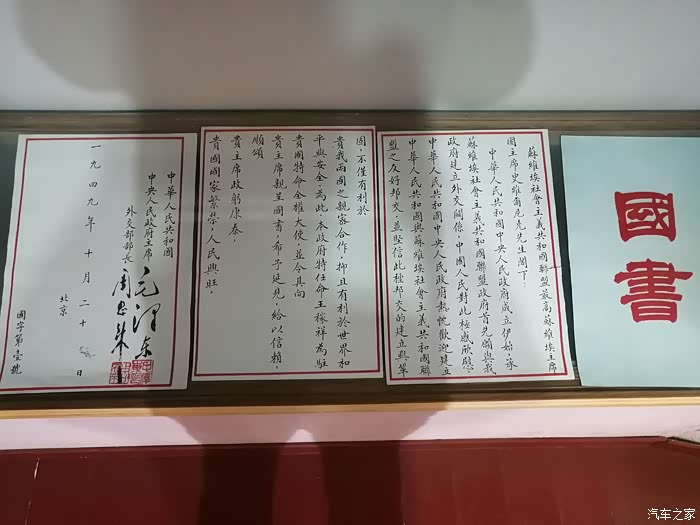 國書
蘇維埃社會主義共和國聯盟最高蘇維埃主席
團主席史維爾尼克先生閣下：
中華人民共和國中央人民政府成立伊始，承
蘇維埃社會主義共和國聯盟政府首先願與我
政府建立外交關係，中國人民對此極感欣慰。
中華人民共和國中央人民政府熱忱歡迎建立
中華人民共和國與蘇維埃社會主義共和國聯
盟之友好邦交，並堅信此種邦交的建立與鞏
固，不僅有利於
貴我兩國之親密合作，抑且有利於世界和
平與安全。為此，本政府特任命王稼祥為駐
貴國特命全權大使，並令其向
貴主席親呈國書，希予延見，給以信賴，
順頌
貴主席政躬康泰，
貴國國家繁榮，人民興旺。
中華人民共和國
中央人民政府主席 毛澤東
外交部部長 周恩來
北京
一九四九年十月二十日
國字第壹號
汽车之家